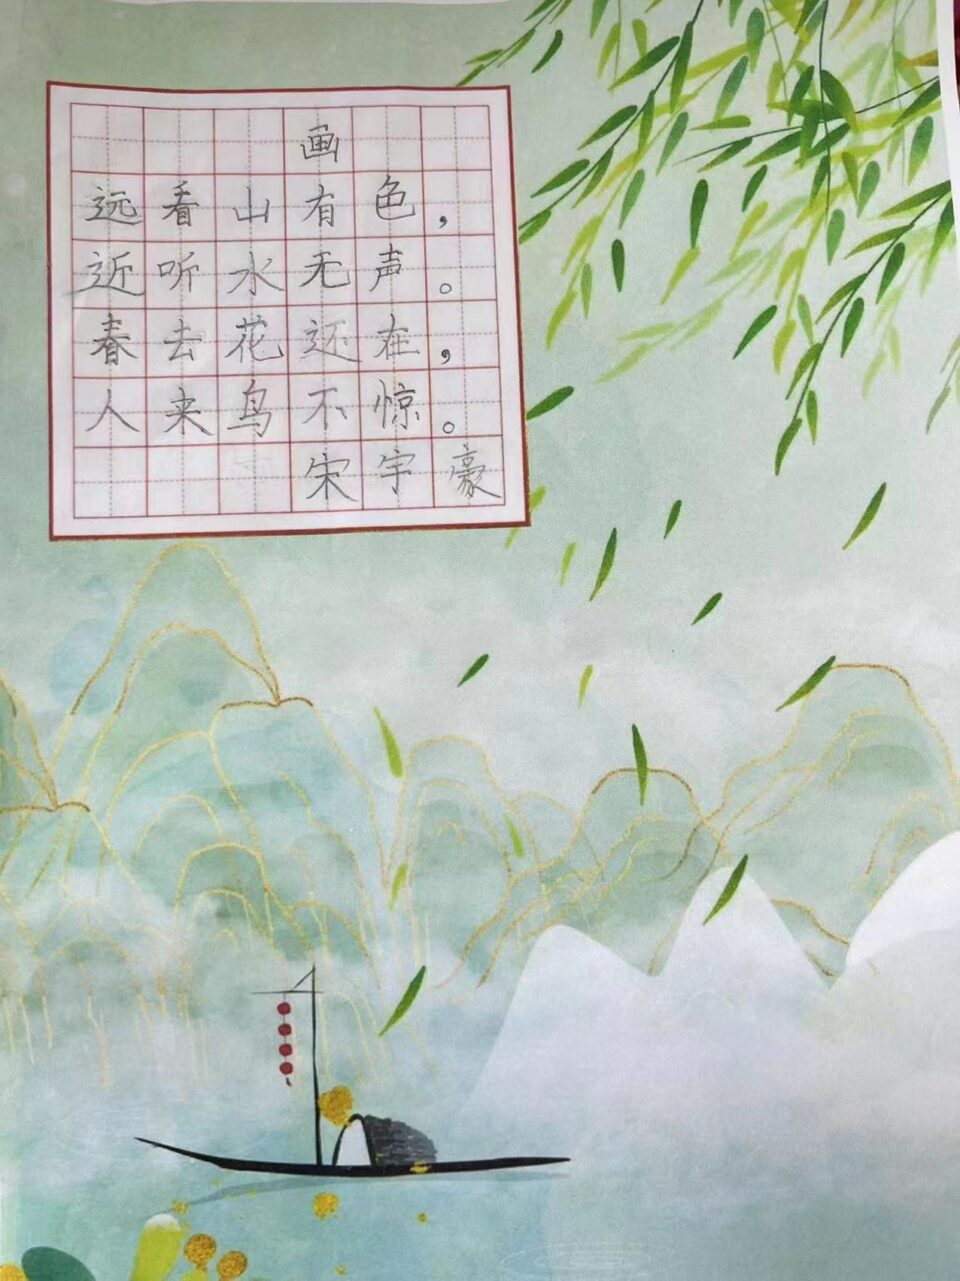 画
远看山有色，
近听水无声。
春去花还在，
人来鸟不惊。
宋宇豪